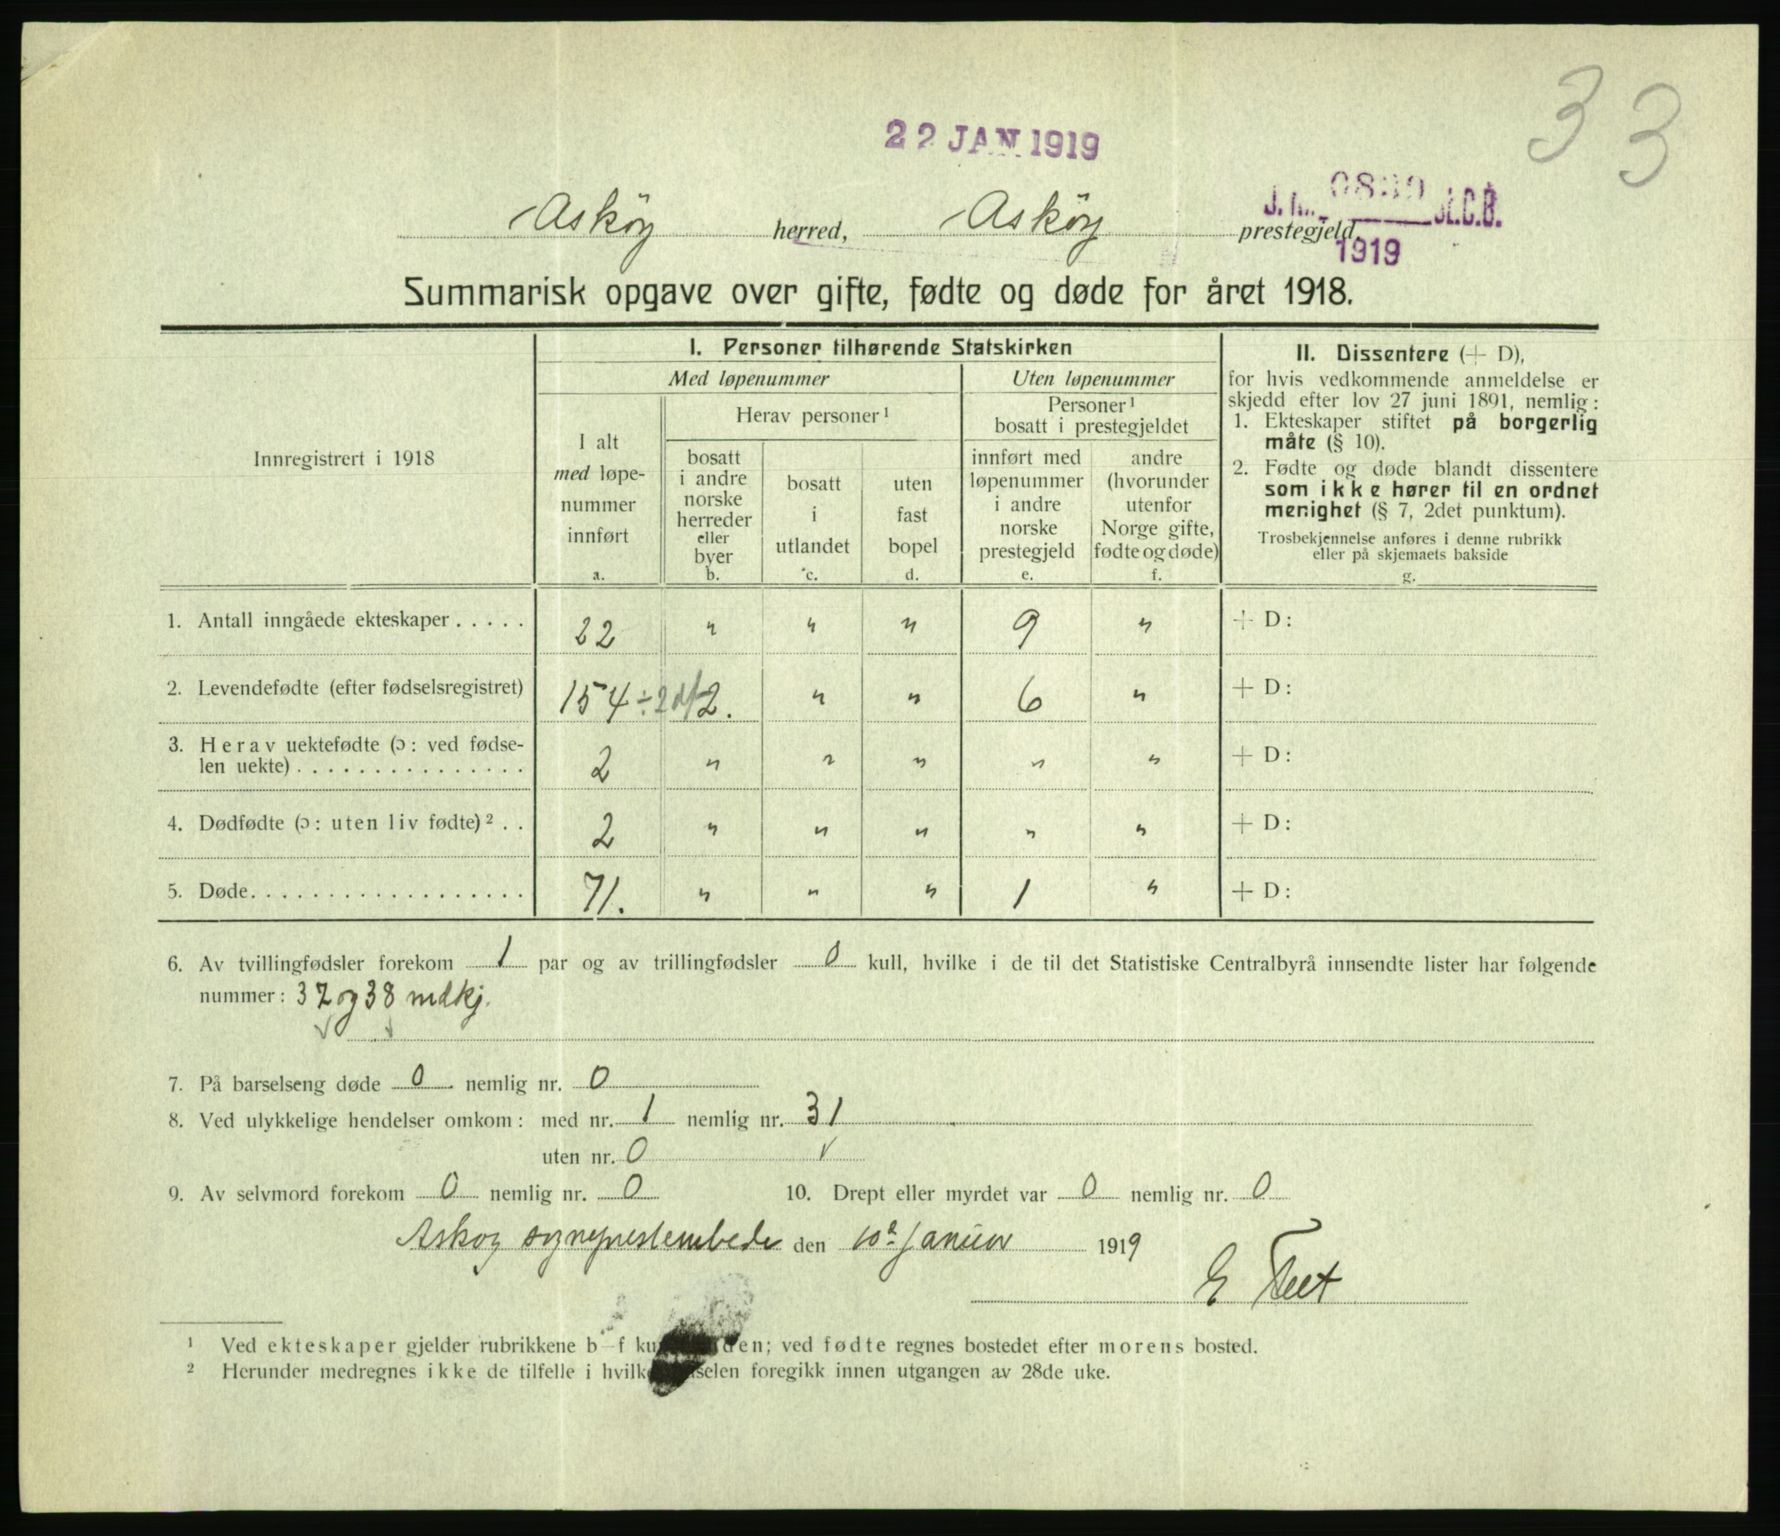 33
22 JAN 1919
Askøy herred, Askøy prestegjeld
1919
Summarisk opgave over gifte, fødte og døde for året 1918.
I. Personer tilhørende Statskirken
II. Dissentere (+ D),
for hvis vedkommende anmeldelse er
skjedd efter lov 27 juni 1891, nemlig:
1. Ekteskaper stiftet på borgerlig
måte (§ 10).
2. Fødte og døde blandt dissentere
som ikke hører til en ordnet
menighet (§ 7, 2det punktum).
Trosbekjennelse anføres i denne rubrikk
eller på skjemaets bakside
g.
Med løpenummer
Uten løpenummer
Innregistrert i 1918
I alt
med løpe-
nummer
innført
a.
Herav personer ¹
bosatt
i andre
norske
herreder
eller
byer
b.
bosatt
i
utlandet
c.
uten
fast
bopel
d.
Personer ¹
bosatt i prestegjeldet
innført med
løpenummer
i andre
norske
prestegjeld
e.
andre
(hvorunder
utenfor
Norge gifte,
fødte og døde)
f.
1. Antall inngåede ekteskaper . . . . . 22 " " " 9 " + D:
2. Levendefødte (efter fødselsregistret) 154 ÷ 2 df 2. " " 6 " + D:
3. Herav uektefødte (ɔ: ved fødse-
len uekte) . . . . . . . . . . . . . . . 2 " " " " " + D:
4. Dødfødte (ɔ: uten liv fødte) ² . . 2 " " " " " + D:
5. Døde. . . . . . . . . . . . . . . . . . 71. " " " 1 " + D:
6. Av tvillingfødsler forekom 1 par og av trillingfødsler 0 kull, hvilke i de til det Statistiske Centralbyrå innsendte lister har følgende
nummer: 37 og 38 mdkj.
7. På barselseng døde 0 nemlig nr. 0
8. Ved ulykkelige hendelser omkom: med nr. 1 nemlig nr. 31
uten nr. 0
9. Av selvmord forekom 0 nemlig nr. 0 10. Drept eller myrdet var 0 nemlig nr. 0
Askøy sogneprestembede den 10d Januar 1919
E Feet
¹ Ved ekteskaper gjelder rubrikkene b—f en; ved fødte regnes bostedet efter morens bosted.
² Herunder medregnes ikke de tilfelle i foregikk innen utgangen av 28de uke.